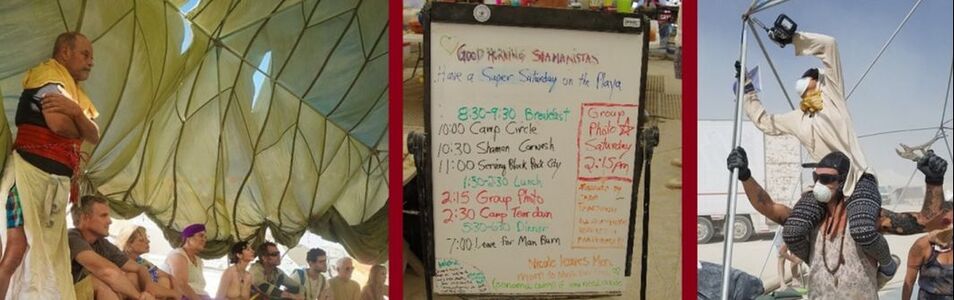 GOOD MORNING SHAMANISTAS
Have a Super Saturday on the Playa
8:30-9:30 Breakfast
10:00 Camp Circle
10:30 Shaman Carwash
11:00 Serving Black Rock City
1:30-2:30 Lunch
2:15 Group Photo
2:30 Camp Tear down
5:30-6:30 Dinner
7:00 Leave for Man Burn
Group
Photo
Saturday
2:15pm
Nicole leaves Mon.